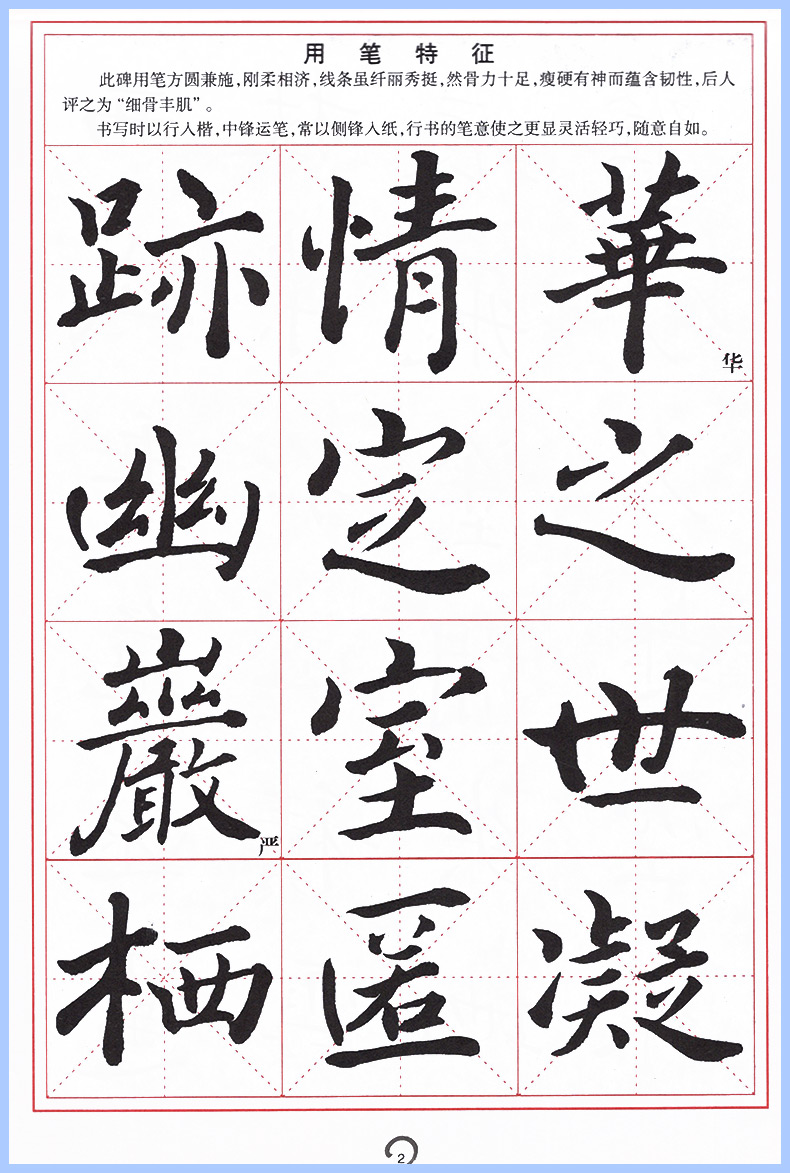 用笔特征
此碑用笔方圆兼施，刚柔相济，线条虽纤丽秀挺，然骨力十足，瘦硬有神而蕴含韧性，后人
评之为“细骨丰肌”。
书写时以行入楷，中锋运笔，常以侧锋入纸，行书的笔意使之更显灵活轻巧，随意自如。
華华之世凝
情定室匿
跡幽巖严栖
2